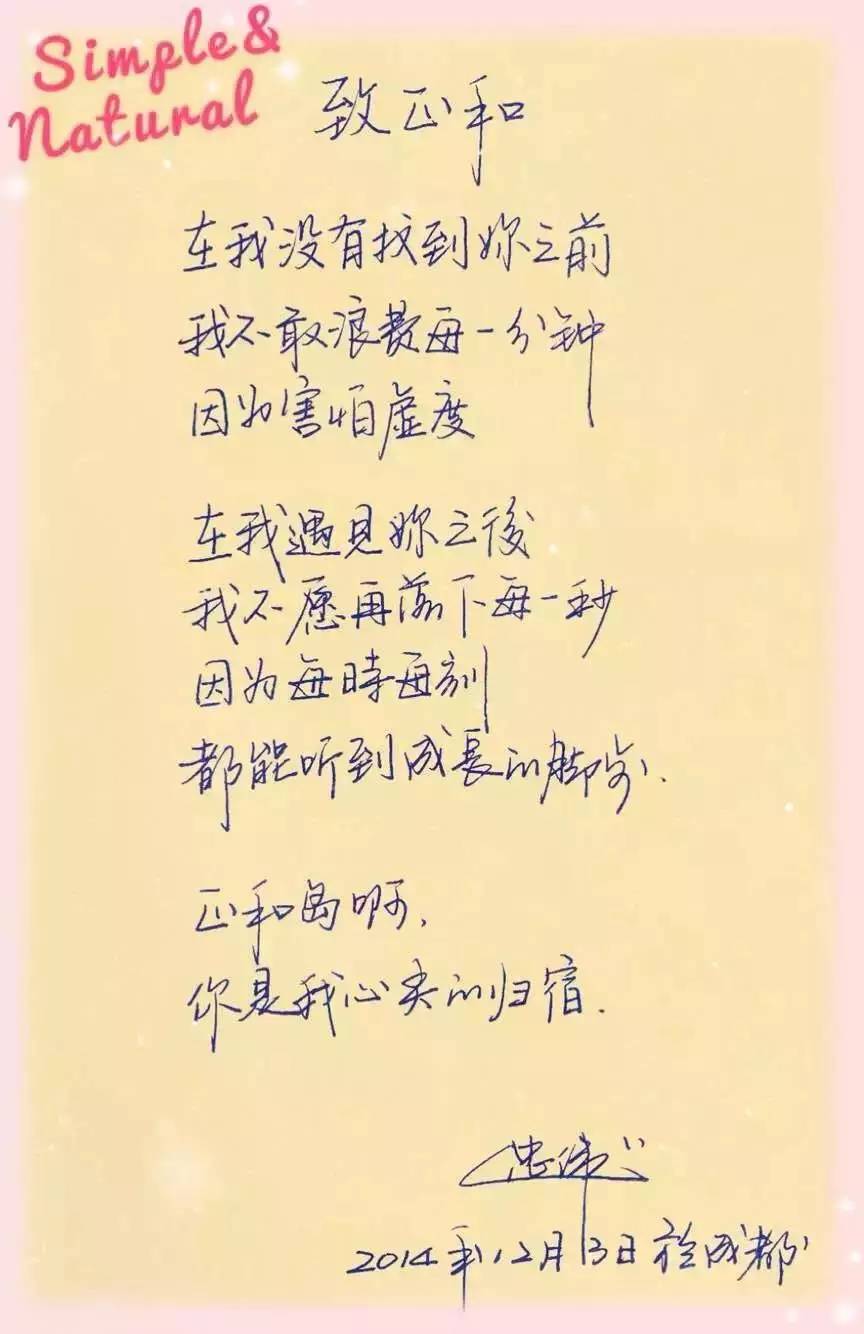 Simple&
Natural
致正和
在我没有找到妳之前
我不敢浪费每一分钟
因为害怕虚度
在我遇見妳之後
我不愿再落下每一秒
因为每時每刻
都能听到成長的脚步.
正和岛啊,
你是我心类的归宿.
2014年12月13日於成都